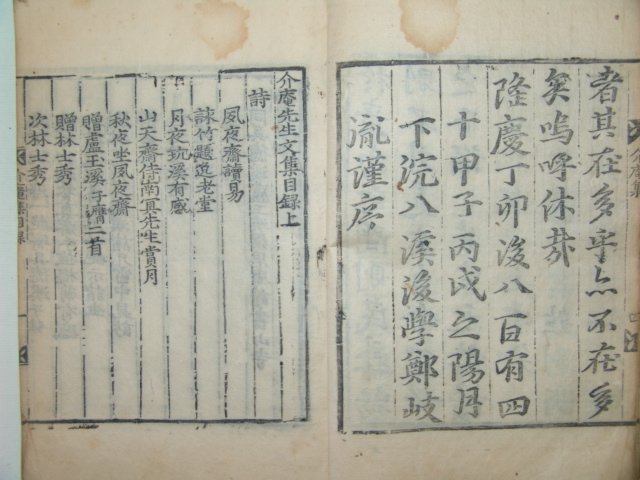 者其在多乎亦不在多
矣嗚呼休哉
隆慶丁卯後八百有四
十甲子丙戌之陽月
下浣八溪後學鄭岐
胤謹序
介庵先生文集目録上
詩
夙夜齋讀易
詠竹題老堂
月夜玩溪有感
山天齋侍南冥先生賞月
秋夜坐夙夜齋
贈盧玉溪子膺二首
贈林士秀
次林士秀
介庵集目録